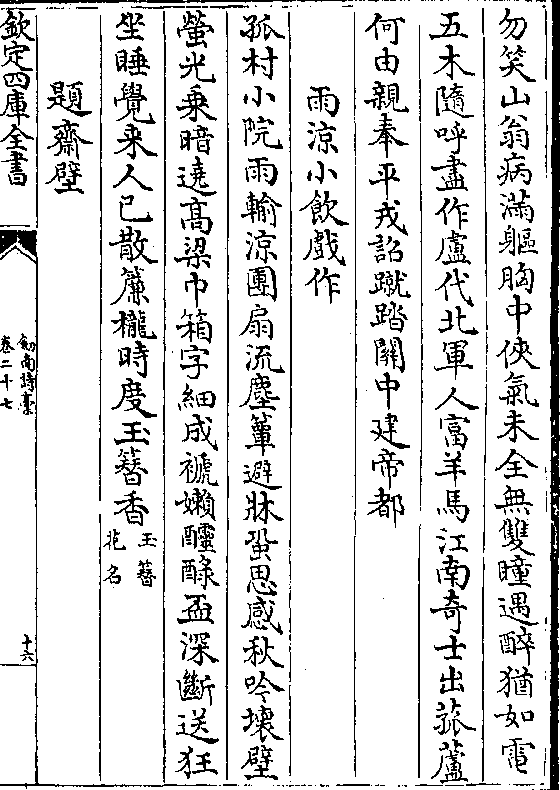 勿笑山翁病滿軀胸中俠氣未全無雙瞳遇醉猶如電
五木隨呼盡作盧代北軍人富羊馬江南奇士出菰蘆
何由親奉平戎詔蹴踏關中建帝都
雨涼小飲戲作
孤村小院雨輸涼團扇流塵簟避牀蛩思感秋吟壞壁
螢光乗暗遶髙梁巾箱字細成褫嬾醽醁盃深斷送狂
坐睡覺来人已散簾櫳時度玉簪香玉簪花名
題齋壁
欽定四庫全書
劔南詩稾
卷二十七
十六